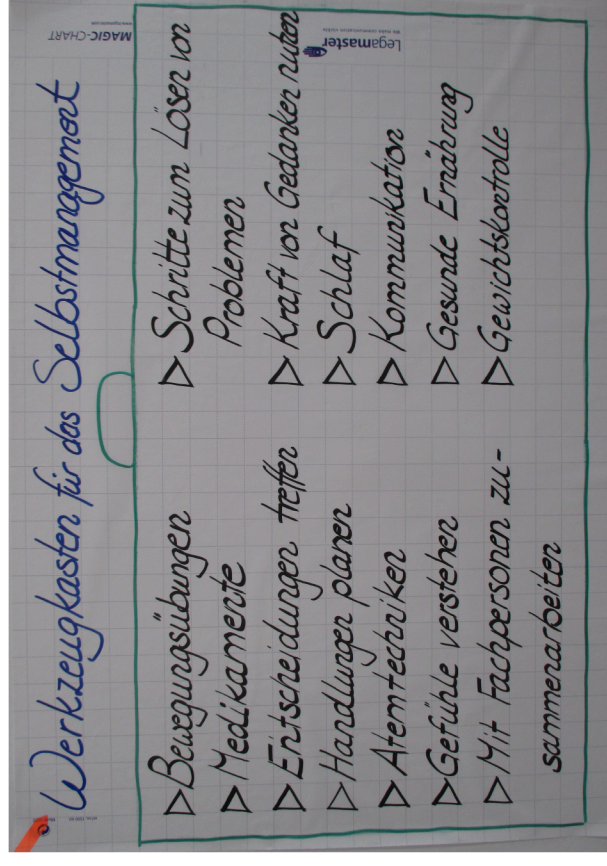 Werkzeugkasten für das Selbstmanagement
> Bewegungsübungen
> Medikamente
> Entscheidungen treffen
> Handlungen planen
> Atemtechniken
> Gefühle verstehen
> Mit Fachpersonen zu-
sammenarbeiten
> Schritte zum Lösen von
Problemen
> Kraft von Gedanken nutzen
> Schlaf
> Kommunikation
> Gesunde Ernährung
> Gewichtskontrolle
MAGIC-CHART
Legamaster